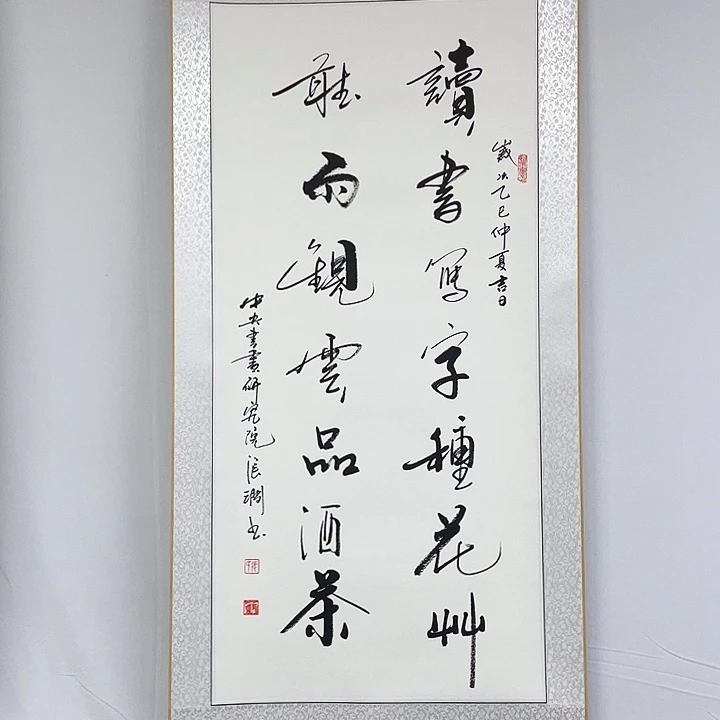 歲次乙巳仲夏吉日
讀書寫字種花艸
聽雨觀雲品酒茶
中央書畫研究院張澗书